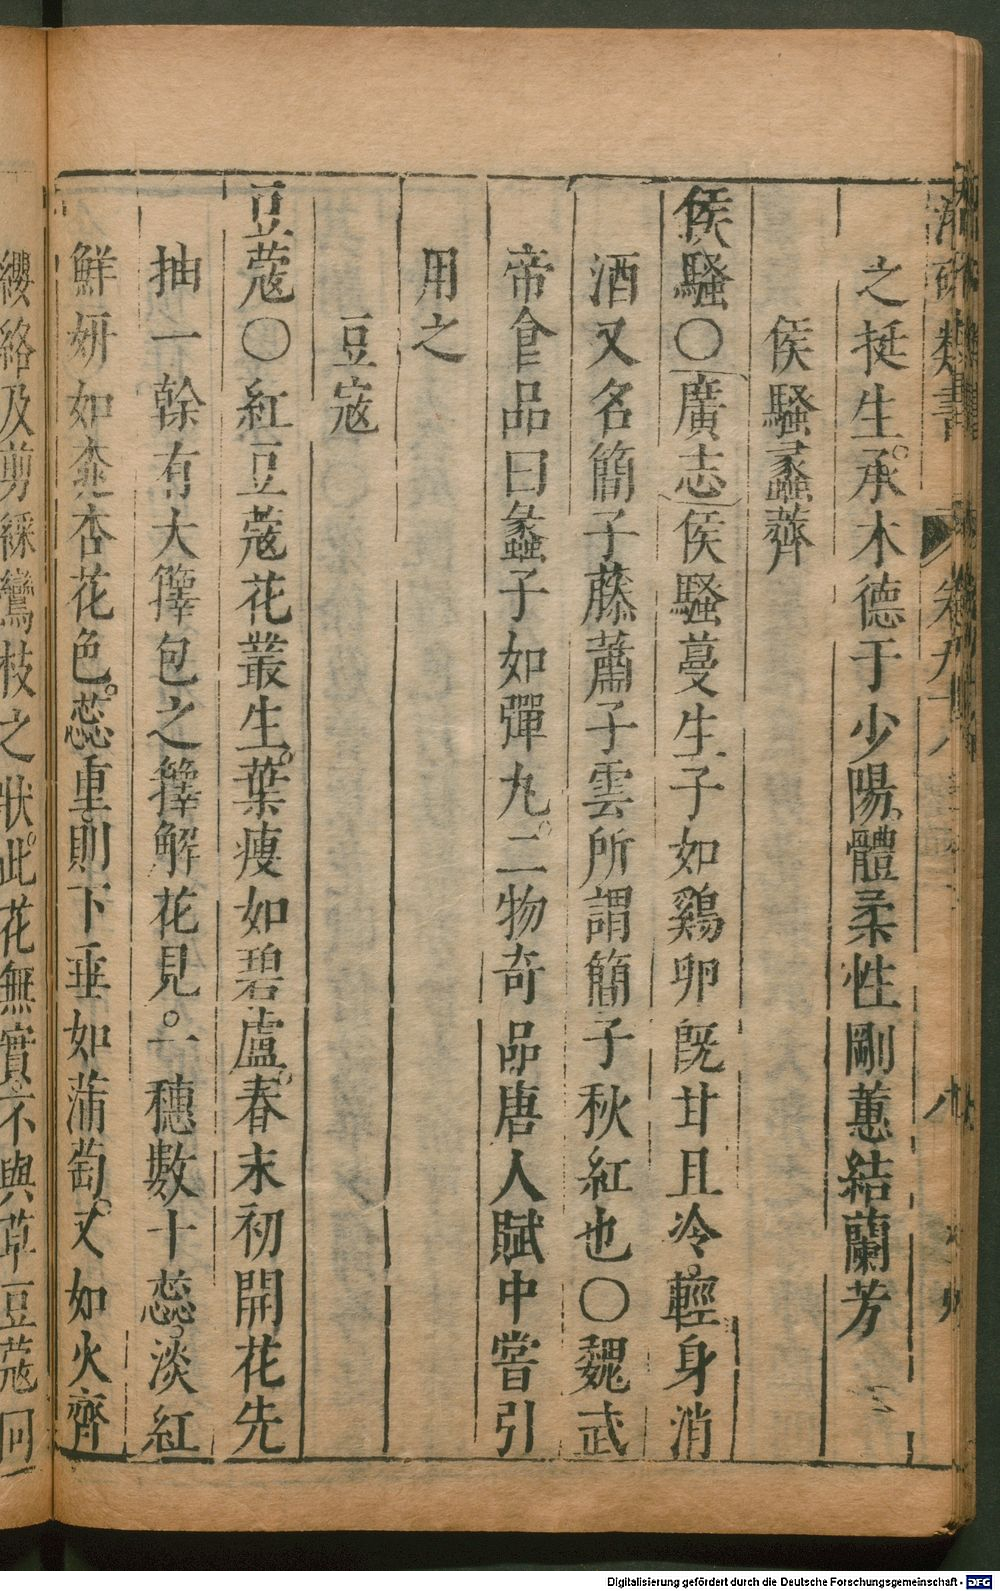 之挺生承木德于少陽體柔性剛蕙結蘭芳
侯騷蠡薺
侯騷〇廣志侯騷蔓生子如鷄卵既甘且冷輕身消
酒又名簡子藤蕭子雲所謂簡子秋紅也〇魏武
帝食品曰蠡子如彈丸二物奇品唐人賦中嘗引
用之
豆寇
豆蔻〇紅豆蔻花叢生葉瘦如碧盧春末初開花先
抽一幹有大籜包之籜解花見一穗數十蕊淡紅
鮮妍如桃杏花色蕊重則下垂如蒲萄又如火齊
纓絡及剪綵鸞枝之狀此花無實不與草豆蔻同
Digitalisierung gefördert durch die Deutsche Forschungsgemeinschaft - DFG